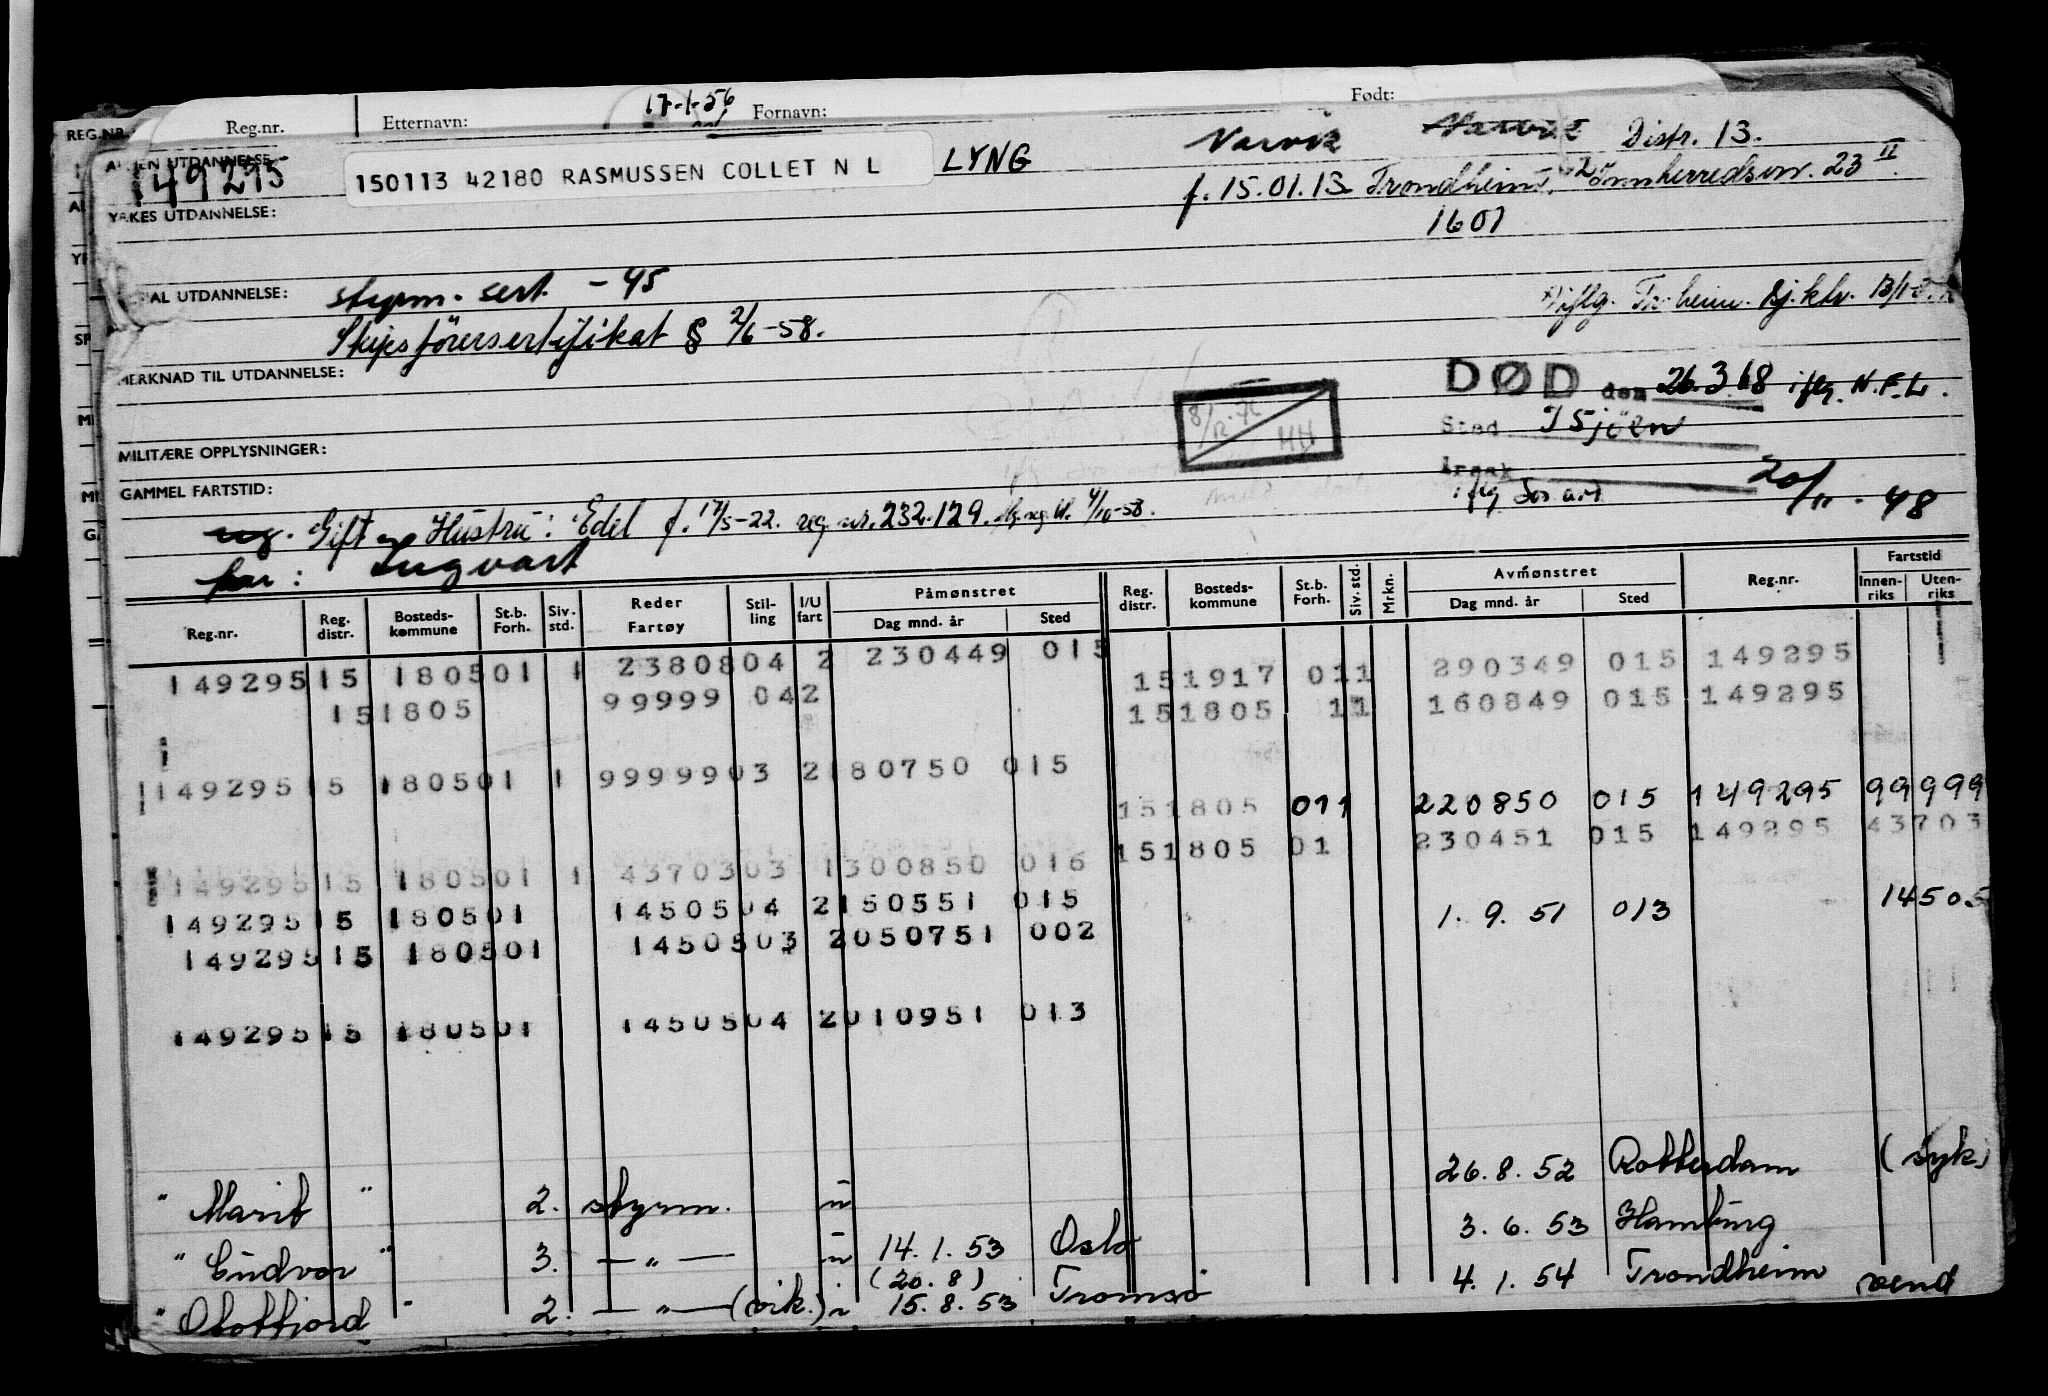 17-1-56
Reg.nr. Etternavn: Fornavn: Født:
REG.NR.
149295
150113 42180 RASMUSSEN COLLET N L LYNG
Narvik Narvik Distr. 13.
f. 15.01.13 Trondheim, Innherredsvn. 23 II
1601
YRKES UTDANNELSE:
AL UTDANNELSE: styrm. sert. - 45
iflg. Tr.heim. sj.ktr.
Skipsförersertifikat § 2/6-58.
MERKNAD TIL UTDANNELSE:
DØD den 26.3.68 iflg. N.F.L.
Sted I Sjöen
Årsak
8/12-76 HH
MILITÆRE OPPLYSNINGER:
GAMMEL FARTSTID:
iflg Sos avd 20/11-48
ug. Gift Hustru: Edel f. 17/5-22. reg. nr. 232.129. 4/10-58.
far: Ingvart
Reg.nr. Reg. distr. Bosteds-kommune St.b. Forh. Siv. std. Reder Fartøy Stil-ling I/U fart Påmønstret Dag mnd. år Sted Reg. distr. Bosteds-kommune St.b. Forh. Siv. std. Mrkn. Avmønstret Dag mnd. år Sted Reg.nr. Fartstid Innen-riks Uten-riks
149295 15 1805 01 1 23808 04 2 230449 015 15 1917 01 1 290349 015 149295
15 1805 99999 04 2 15 1805 1 1 160849 015 149295
149295 15 1805 01 1 99999 03 2 180750 015 15 1805 01 1 220850 015 149295 99999
149295 15 1805 01 1 43703 03 1 300850 016 15 1805 01 230451 015 149295 43703
149295 15 1805 01 14505 04 2 150551 015 1.9.51 013 14505
149295 15 1805 01 14505 03 2 050751 002
149295 15 1805 01 14505 04 2 010951 013
" Marit " 2. styrm. u 26.8.52 Rotterdam (syk)
" Gudvor " 3. — " — u 14.1.53 Oslo 3.6.53 Hamburg
" Ofotfjord " 2. — " — (vik.) i (20.8) 15.8.53 Tromsø 4.1.54 Trondheim vend